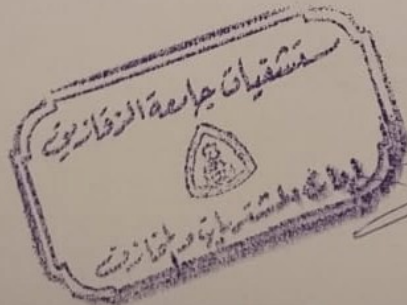 مستشفيات جامعة الزقازيق
والمشتريات والمخازن